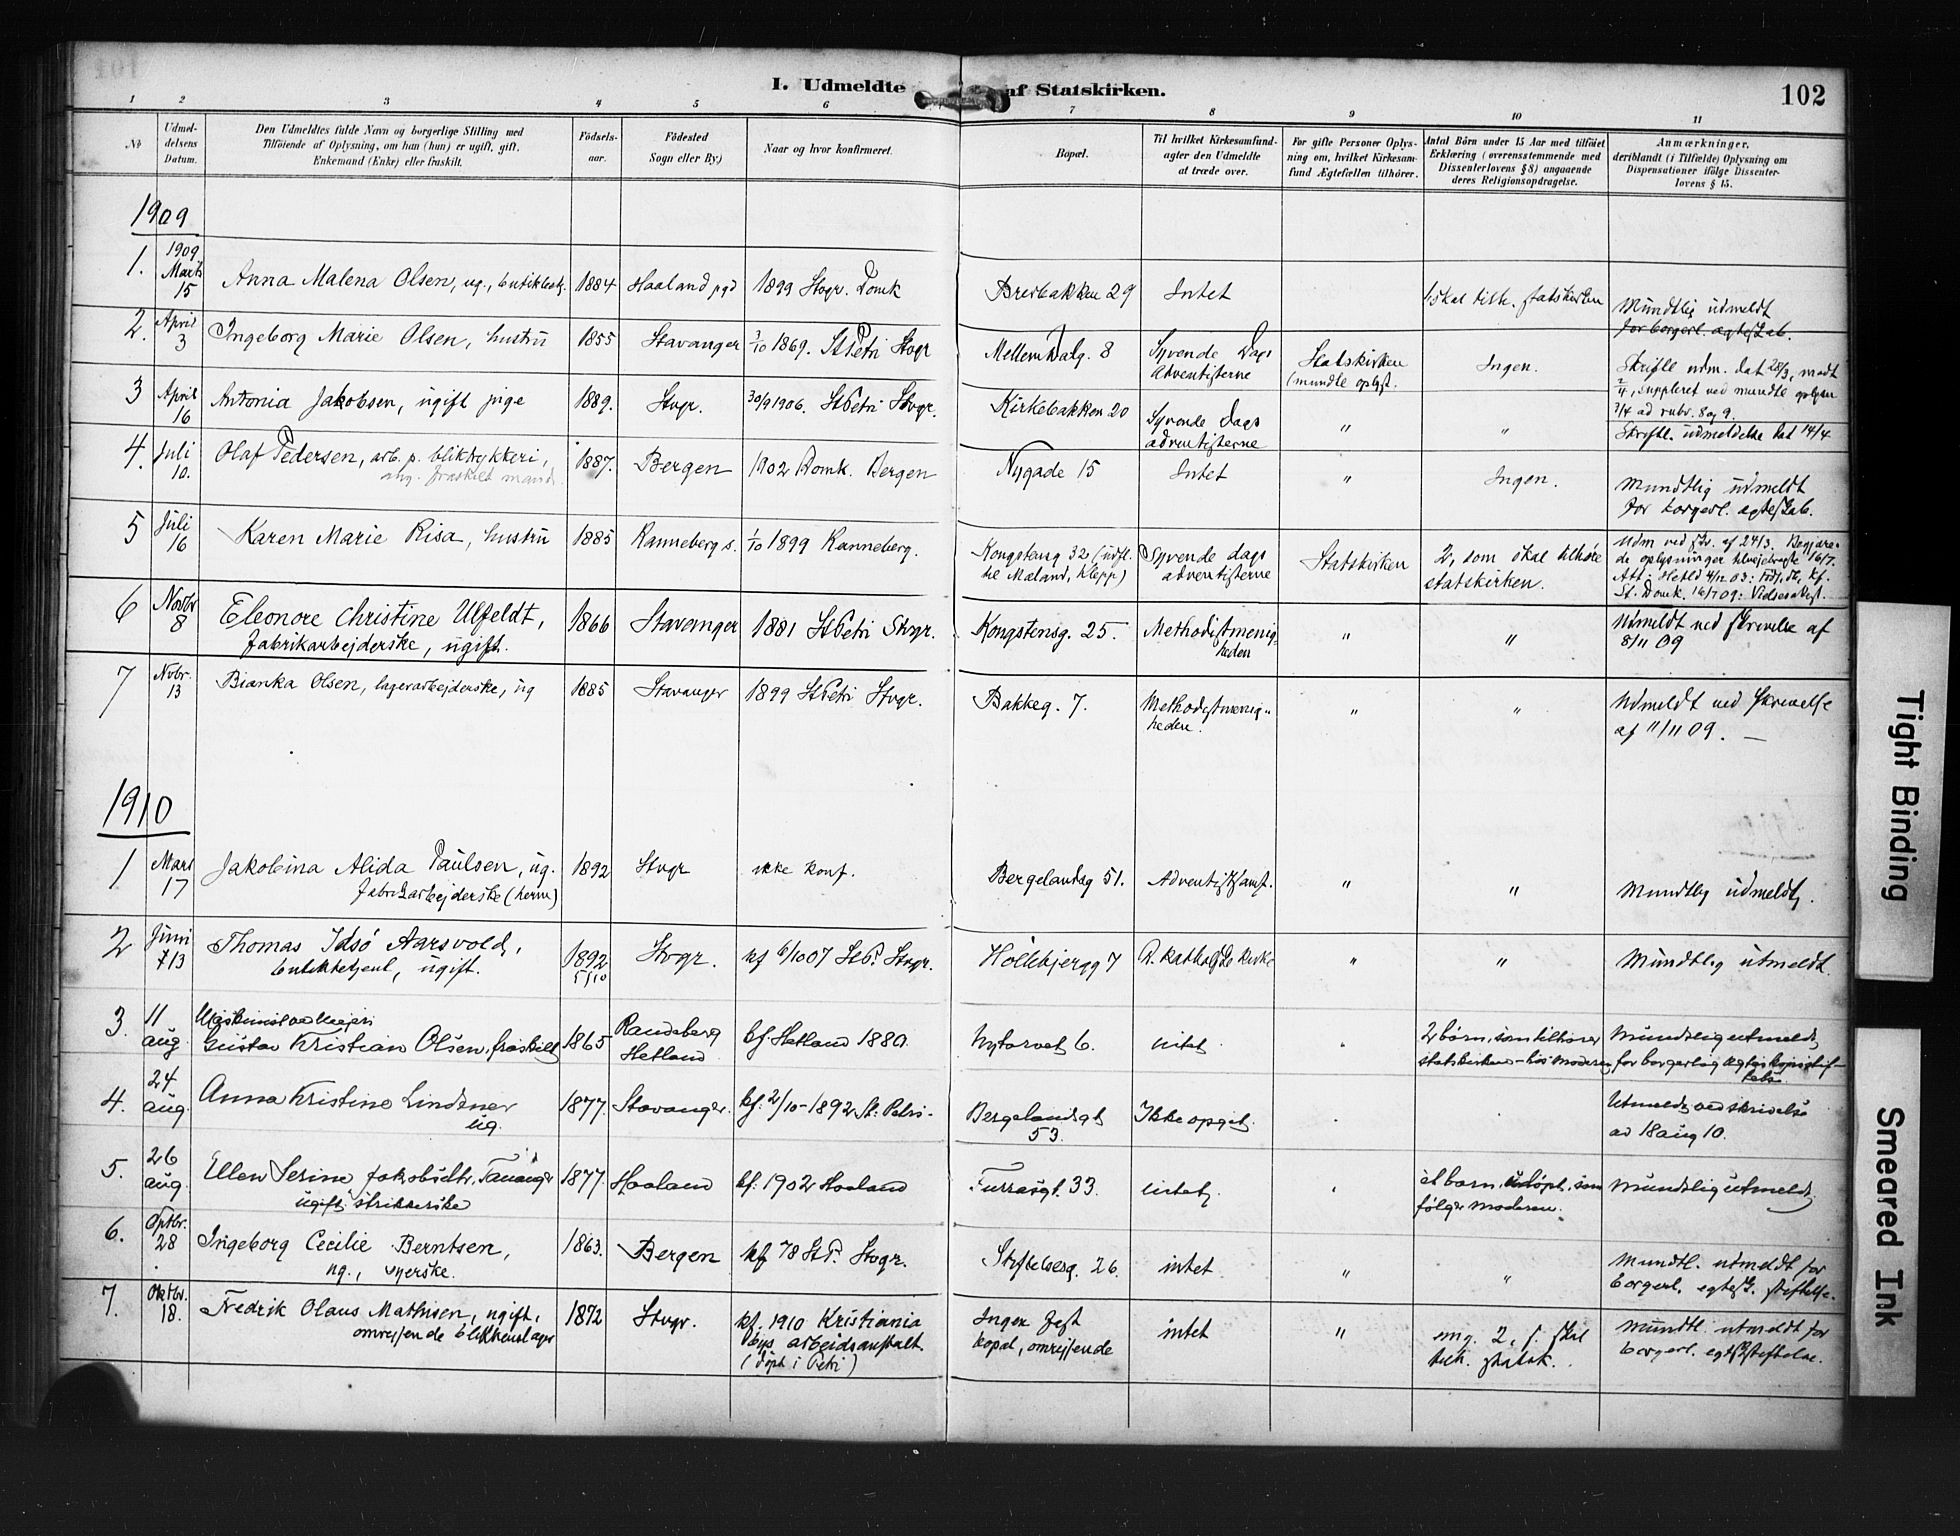 I. Udmeldte af Statskirken.
102
1 2 3 4 5 6 7 8 9 10 11
No
Udmel-
delsens
Datum.
Den Udmeldtes fulde Navn og borgerlige Stilling med
Tilføiende af Oplysning, om han (hun) er ugift, gift,
Enkemand (Enke) eller fraskilt.
Fødsels-
aar.
Fødested
Sogn eller By.)
Naar og hvor konfirmeret.
Bopæl.
Til hvilket Kirkesamfund-
agter den Udmeldte
at træde over.
For gifte Personer Oplys-
ning om, hvilket Kirkesam-
fund Ægtefællen tilhører.
Antal Börn under 15 Aar med tilføiet
Erklæring (overensstemmende med
Dissenterlovens § 8) angaaende
deres Religionsopdragelse.
Anmærkninger,
deriblandt (i Tilfælde) Oplysning om
Dispensationer ifølge Dissenter-
lovens § 15.
1909
1. 1909 Marts 15 Anna Malena Olsen, ug., 1884 Haaland pgd 1899 Stvgr. Domk Bredbakken 29 Intet 1 skal tilh. statskirken Mundtlig udmeldt
for borgerl. ægteskab.
2. April 3 Ingeborg Marie Olsen, hustru 1855 Stavanger 3/10 1869. St Petri Stvgr Mellem Dalg. 8 Syvende Dags
adventisterne Statskirken
(mundtl. oplyst. Ingen. Skriftl. udm. dat 28/3, modt
2/4, suppleret ved mundtl. oplysn
3/4 ad rubr. 8 og 9.
3 April 16 Antonia Jakobsen, ugift pige 1889. Stvgr. 30/9 1906. St Petri Stvgr. Kirkebakken 20 Syvende Dags
adventisterne " " Skriftl. udmeldelse dat 14/4
4. Juli 10. Olaf Pedersen, arb. p. bliktrykkeri,
ang. fraskilt mand. 1887. Bergen 1902 Domk. Bergen Nygade 15 Intet " Ingen. Mundtlig udmeldt
for borgerl. ægteskab.
5 Juli 16 Karen Marie Risa, hustru 1885 Ranneberg s. 1/10 1899 Ranneberg. Kongstensg 32 (indfl.
til Maland, Klepp) Syvende dags
adventisterne Statskirken 2, som skal tilhøre
statskirken. Udm ved skr. af 24/3. Begjære-
de oplysninger 16/7.
Att. Hetld 4/11 03:
St. Domk. 16/7 09:
6 Novbr 8 Eleonore Christine Ulfeldt,
fabrikarbejderske, ugift. 1866 Stavanger 1881 St Petri Stvgr. Kongstensg. 25. Methodistmenig-
heden " " Udmeldt ved skrivelse af
8/11 09
7 Novbr. 13 Bianka Olsen, lagerarbejderske, ug 1885 Stavanger 1899 St Petri Stvgr. Bakkeg. 7. Methodistmenig-
heden. " " Udmeldt ved skrivelse
af 11/11 09. —
1910
1 Mars 17 Jakobina Alida Paulsen, ug.
fabrikarbejderske (herm) 1892 Stvgr ikke konf. Bergelandsg 51. Adventistsamf. " " Mundtlig udmeldt.
2 Juni 13 Thomas Idsø Aarsvold,
butikbetjent, ugift. 1892
5/10 Stvgr. kf 6/10 07 St P. Stvgr. Hollebjergg 7 R. katholske kirke " " Mundtlig utmeldt.
3. 11 aug. Maskinist ved Meieri
Gustav Kristian Olsen, fraskilt 1865 Randeberg
Hetland kf. Hetland 1880. Nytorvet 6. intet. 2 børn, som tilhører
statskirken - hos moderen Mundtlig utmeldt
for borgerlig
4. 24 aug. Anna Kristine Lindtner
ug. 1877. Stavanger. kf. 2/10-1892 St. Petri. Bergelandsgt
53. Ikke opgit. Utmeldt ved skrivelse
av 18 aug 10.
5. 26 aug. Ellen Serine Jakobsdtr. Tananger
ugift strikkerske 1877. Haaland kf. 1902 Haaland Furrasgt. 33. intet. et barn, udøpt, som
følger moderen. Mundtlig utmeldt
6. Septbr. 28 Ingeborg Cecilie Berntsen,
ug., syerske. 1863. Bergen kf 78 St P. Stvgr. Stiftelsesg. 26. intet " " Mundtl. utmeldt for
borgerl. egtesk. stiftelse.
7. Oktbr. 18. Fredrik Olaus Mathisen, ugift,
omreisende blikkenslager 1872 Stvgr. kf. 1910 Kristiania
Bys arbeidsanstalt.
(døpt i Petri) Ingen fast
bopæl, omreisende intet " ang. 2, s. skal
tilh. statsk. Mundtl. utmeldt for
borgerl. egtsk.stiftelse.
Tight Binding
Smeared Ink